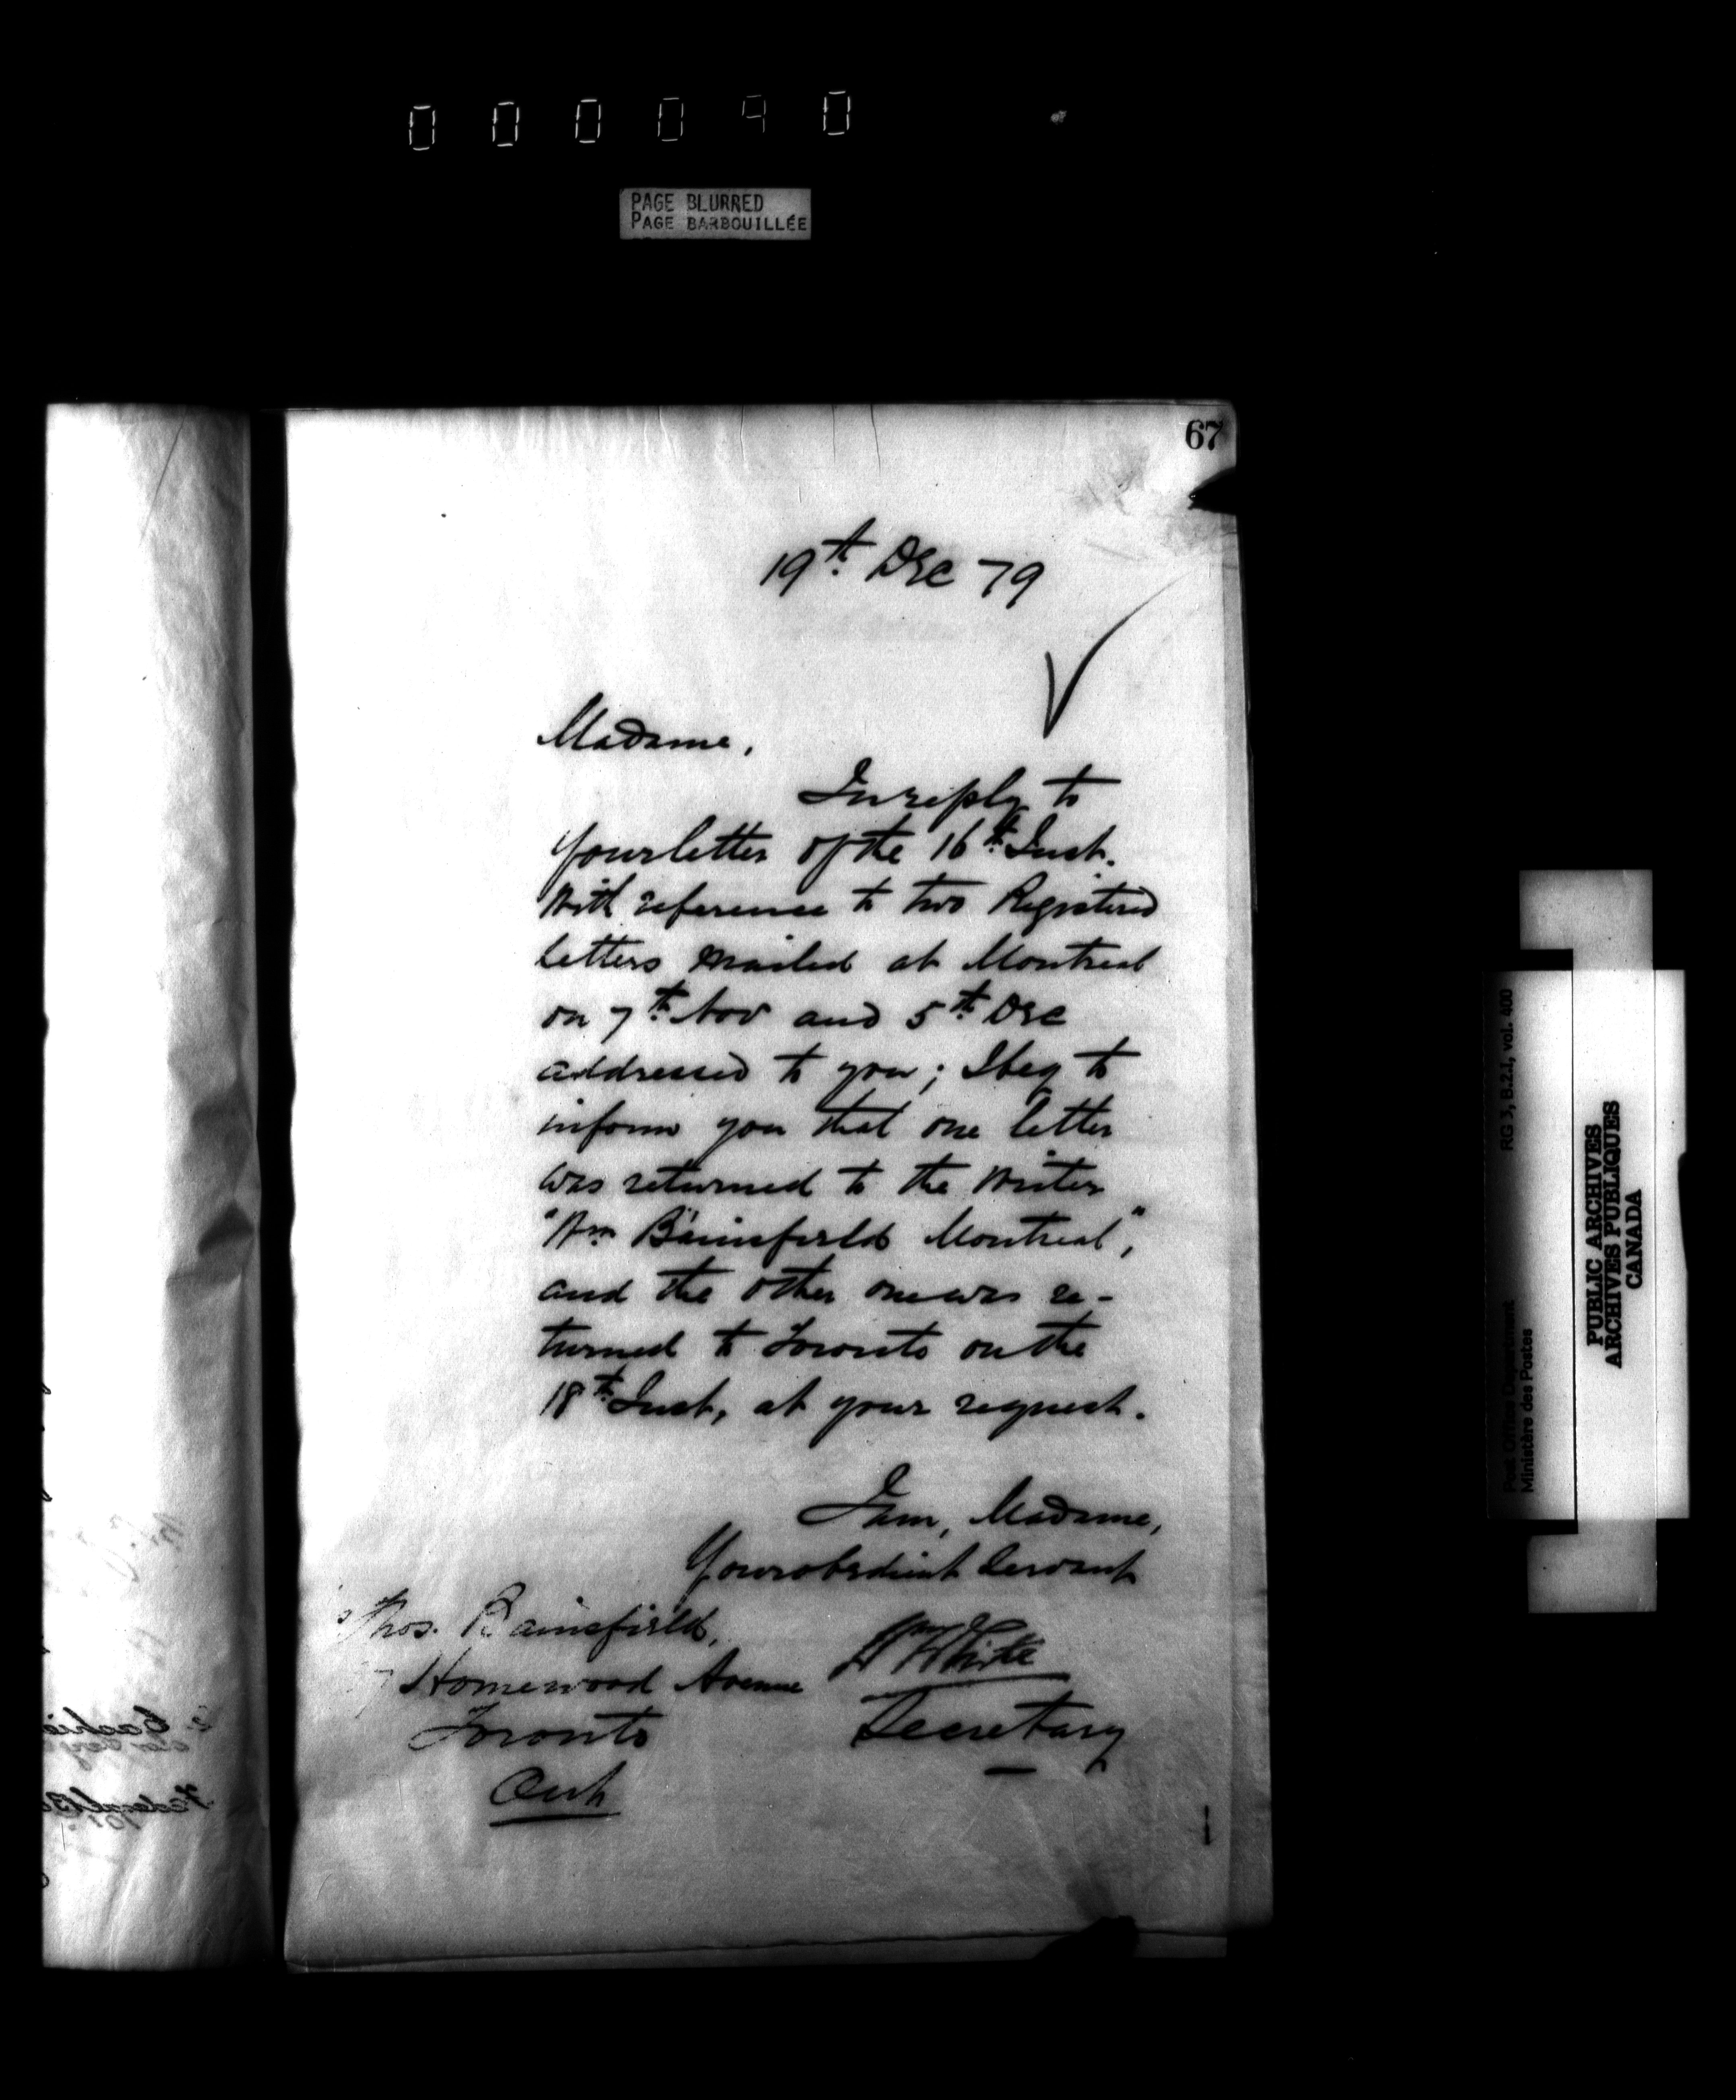 000090
PAGE BLURRED
PAGE BARBOUILLÉE
67
19th Dec 79
Madame,
In reply to
your letter of the 16th Inst.
with reference to two Registered
letters mailed at Montreal
on 7th Nov and 5th Dec
addressed to you; I beg to
inform you that one letter
was returned to the writer
"Wm Bainsfield Montreal",
and the other one was re-
turned to Toronto on the
18th Inst, at your request.
I am, Madame,
Your obedient Servant
Wm White
Secretary
Thos. Bainsfield,
Homewood Avenue
Toronto
Ont
RG 3, B.2.1, vol. 400
Post Office Department
Ministère des Postes
PUBLIC ARCHIVES
ARCHIVES PUBLIQUES
CANADA